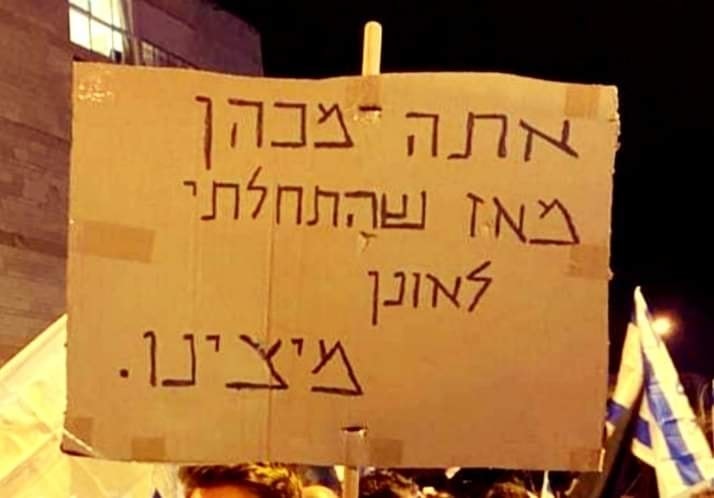 אתה מכהן
מאז שהתחלתי
לאונן
מיצינו.